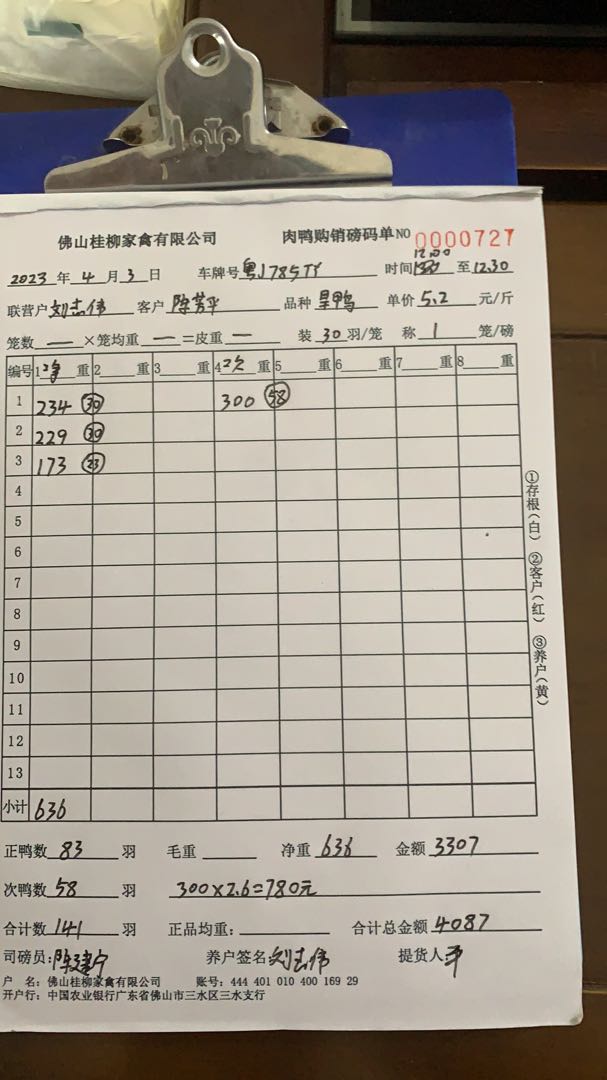 佛山桂柳家禽有限公司 肉鸭购销磅码单NO 0000727
12.00
2023年4月3日 车牌号粤J785TY 时间 至12.30
联营户刘志伟 客户陈芳平 品种旱鸭 单价5.2元/斤
笼数—×笼均重—=皮重— 装30羽/笼 称1笼/磅
编号 1净重 2 重 3 重 4次重 5 重 6 重 7 重 8 重
1 234 30 300 58
2 229 30
3 173 23
4
5
6
7
8
9
10
11
12
13
小计 636
正鸭数83羽 毛重 净重636 金额3307
次鸭数58羽 300×2.6=780元
合计数141羽 正品均重: 合计总金额4087
司磅员:陈建宁 养户签名刘志伟 提货人平
户 名:佛山桂柳家禽有限公司 账号:444 401 010 400 169 29
开户行:中国农业银行广东省佛山市三水区三水支行
①存根(白) ②客户(红) ③养户(黄)